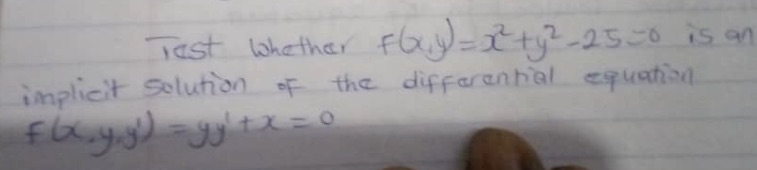 Test whether f(x,y)=x²+y²-25=0 is an
implicit solution of the differential equation
f(x,y,y')=yy'+x=0